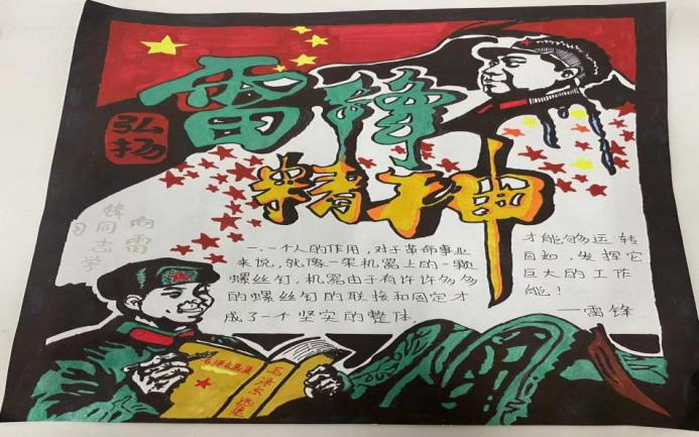 弘扬
雷锋
精神
向雷
锋同志学
习
一、一个人的作用，对于革命事业
来说，就像一架机器上的一颗
螺丝钉，机器由于有许许多多
的螺丝钉的联接和固定才
成了一个坚实的整体，
才能够运转
自如，发挥它
巨大的工作
能！
——雷锋
毛泽东选集
毛泽东选集